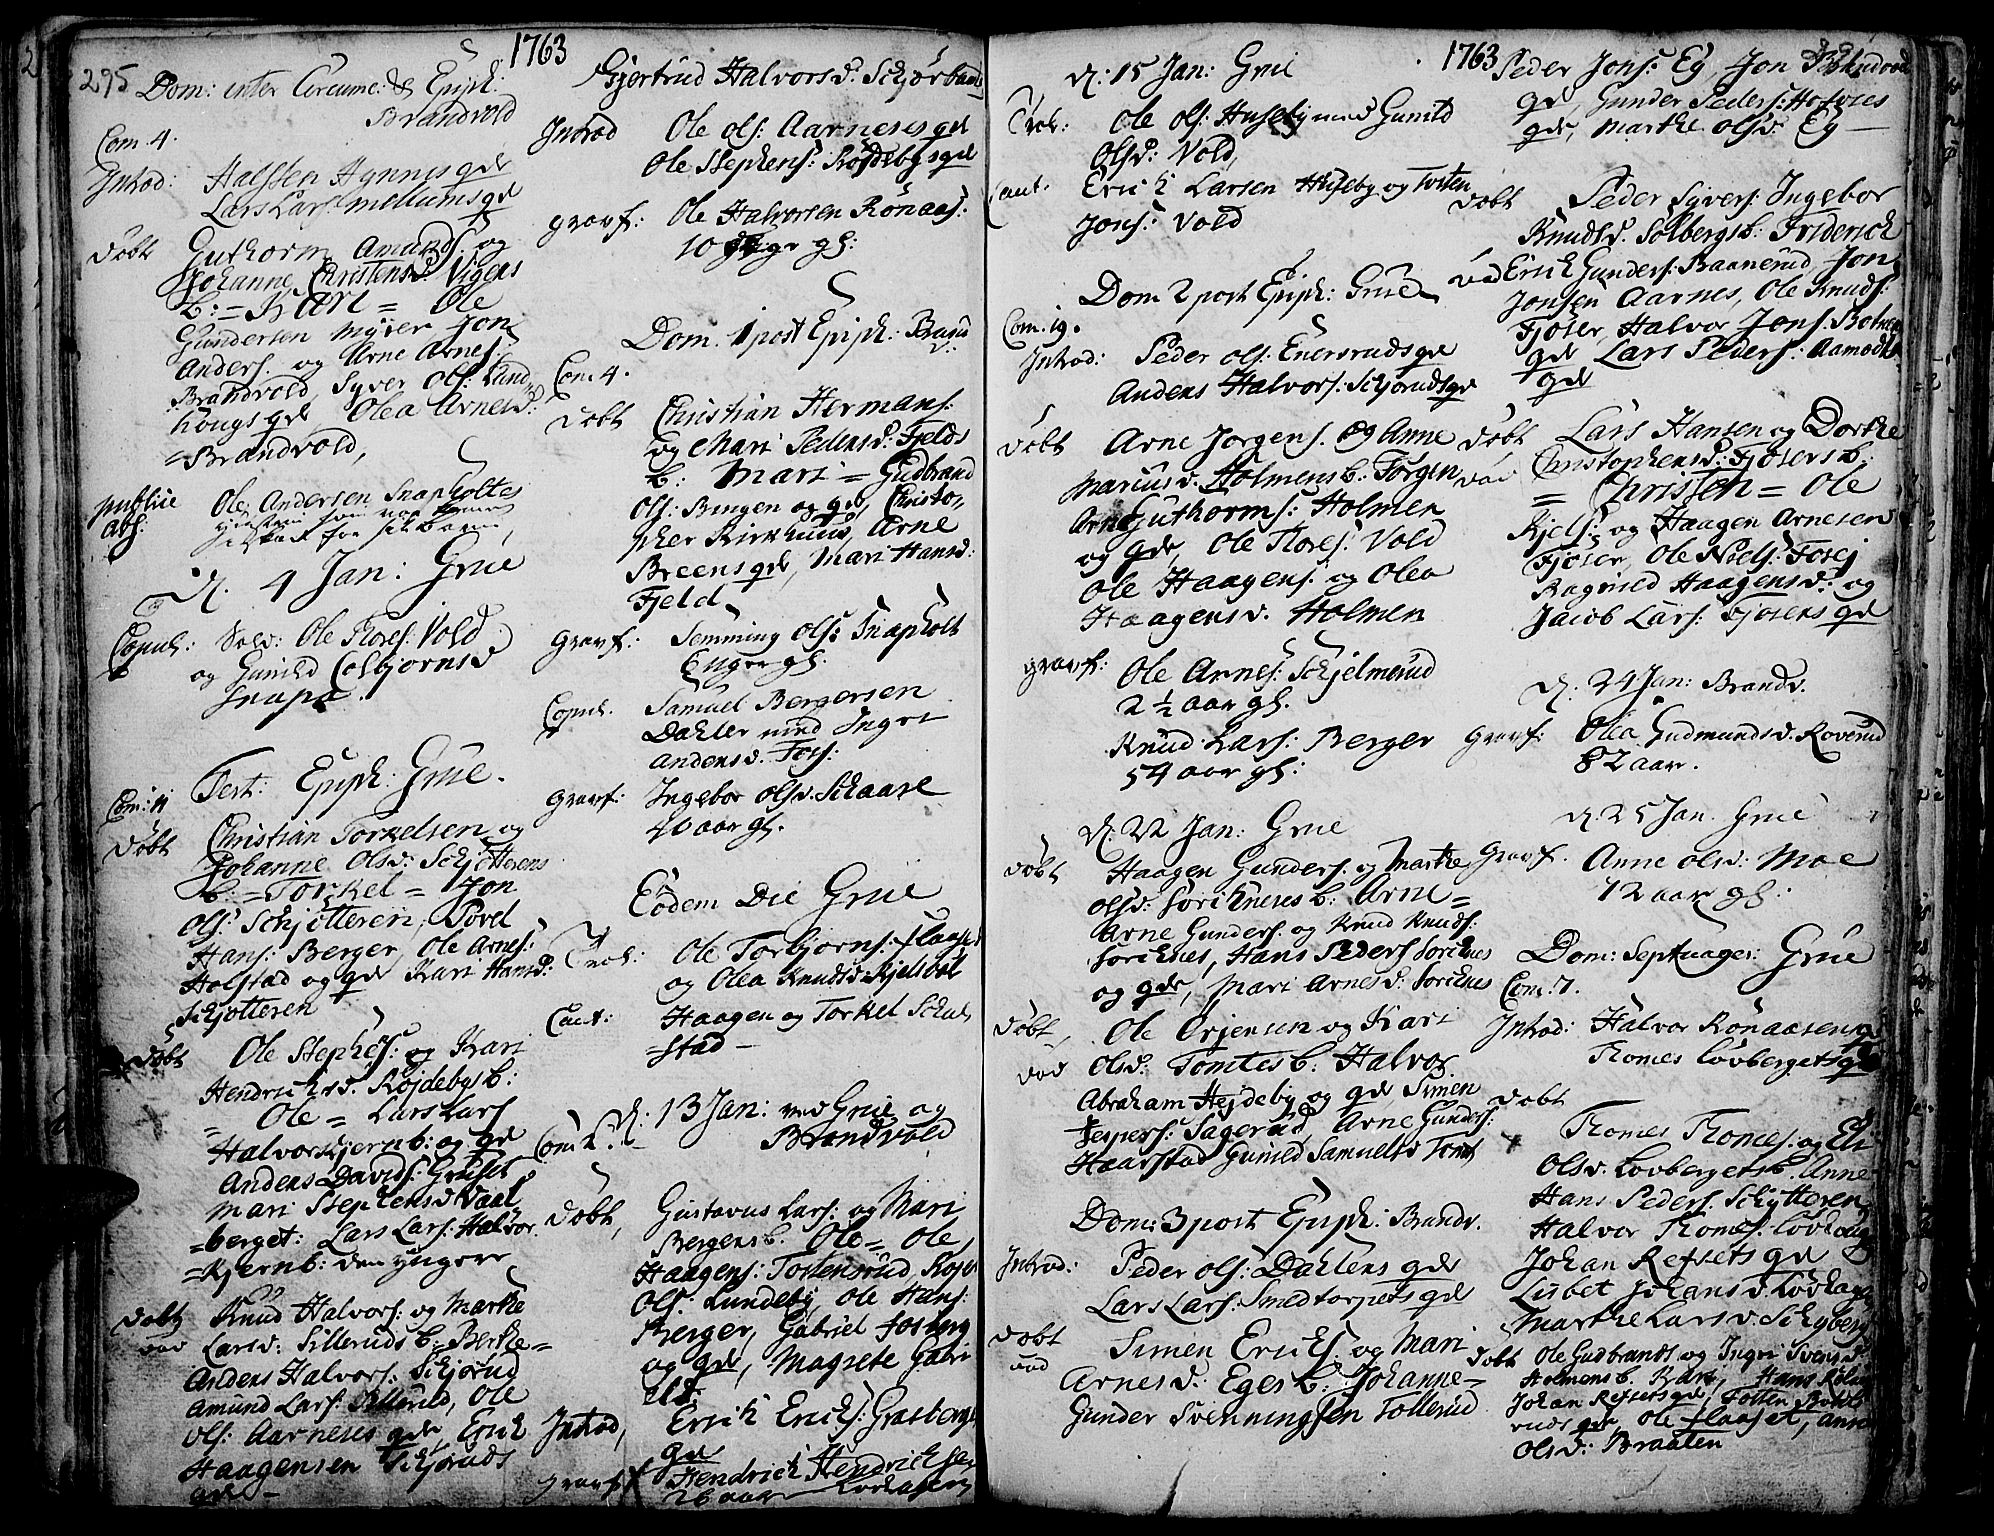 295
1763
Dom: inter Circumc: & Epiph:
Brandvold
Com. 4.
Introd: Halsten Hynnes gde
Lars Lars: Mellums gde
Döbt Guthorm Amunds: og
Johanne Christensd: Vigers
b: = Kari = Ole
Gundersen Myrer Jon
Anders: og Arne Arnes:
Brandvold, Syver Ols: Lund
hougs gde Olea Arnesd:
= Brandvold,
publice
Abs: Ole Andersen Snapholtes
d: 4 Jan: Grue
Copul: Sold: Ole Thores: Vold
og Gunild Colbjornsd
Snapa.
Fest: Epiph: Grue.
Com: 11
Döbt Christian Torkelsen og
Johanne Olsd: Schjötterens
b: = Torkel = Jon
Ols: Schjötteren, Povel
Hans: Berger, Ole Arnes:
Holstad og gde Kari Hansd:
Schjotteren
Döbt Ole Stephes: og Kari
Hendrichsd. Röjdebys b:
= Ole = Lars Lars
Halvorskjernb: og gde
Anders Davids: Gruset
Mari Stephensd Vaal
=berget: Lars Lars: Halvor
=kjernb: den yngere
Döbt Knud Halvors: og Marthe
Larsd: Sillerudsb: Berthe=
Anders Halvors: Schjörud
Amund Lars: Sillerud, Ole
Ols: Aarneses gde, Erich
Haagensen Schjöruds
gde -
Gjertrud Halvorsd: Schjör
Introd Ole Ols: Aarneses gde
Ole Stephens: Rojdebys gde
gravf: Ole Halvorsen Rönaas:
10 gl:
Dom. 1 post Epiph: Brand
Com 4.
Döbt Christian Hermans:
og Mari Pedersd: Fjelds
b: Mari = Gudbrand
Ols: Bingen og gde, Christo,
pher Kirkhuus, Arne
Breens gde, Mari Hansd:
Fjeld
gravf: Semming Ols: Snapholt
6 uger gl:
Copul. Samuel Bergersen
Dahler med Ingri
Andersd. Fors:
gravf: Ingebor Olsd: Schaare
40 aar gl.
Eodem Die Grue
Trol: Ole Torbjorns: Flaaset
og Olea Knudsd Kjelsböl
Caut: Haagen og Torkel
stad -
d: 13 Jan: ved Grue og
Brandvold
Com 2.
Döbt, Gustavus Lars: og Mari
Bergers b. Ole = Ole
Haagens: Tostensrud
Ols: Lundeby, Ole Hans:
Berger, Gabriel Fosberg
og gde, Magrete Gabri
elsd.
Introd, Erich Erichs: Grasberge
gde
gravf Hendrich Hendrichsen
26 aar
d: 15 Jan: Grue
Trol: Ole Ols: Huseby med Gunild
Olsd: Vold,
Caut. Erich Larsen Huseby og Torsten
Jons: Vold
Dom 2 post Epiph: Grue
Com. 19.
Introd: Peder Ols: Enersruds gde
Anders Halvors: Schjoruds gde
Döbt Arne Jorgens. og Anne
Mariusd. Holmens b: Jörgen
Arne Guthorms: Holmer
og gde, Ole Thores: Vold
Ole Haagens: og Olea
Haagensd. Holmen
gravf: Ole Arnes: Schjelmerud
2 1/2 aar gl.
Knud Lars: Berger
54 aar gl:
d: 22 Jan: Grue
Döbt Haagen Gunders. og Marthe
Olsd. Soriknes b: Arne=
Arne Gunders. og Knud Knuds:
Soriknes, Hans Peders Soriknes
og gde, Mari Arnesd: Soriknes
Döbt, Ole Örjensen og Kari
Olsd: Tomtes b: Halvor
Abraham Hejdeby og gde Simen
Jespers: Sagerud Arne Gunders:
Haarstad Gunild Samuelsd Tomt
Dom: 3 post Epiph: Brandv.
Introd: Peder Ols: Dahlens gde
Lars Lars: Smedtorpets gde
Döbt Simen Erichs. og Mari
Arnesd: Eges b: Johanne=
Gunder Svenningsen Tollerud
1763
Peder Jons: Eg, Jon Brandvol
gde, Gunder Peders: Hofvies
gde, Marthe Olsd: Eg -
Döbt Peder Syvers: Ingebor
Knudsd. Solbergs b: Friderich
Erich Gunders: Baanerud Jon
Jonsen Aarnes, Ole Knuds:
Fjoser, Halvor Jons: Botner
gde Lars Peders: Aamodts
gde
Döbt Lars Hansen og Dorthe
Christophersd: Fjosers b:
= Christen = Ole
Kjels: og Haagen Arnesen
Fjoser, Ole Niels: Forej
Ragnild Haagensd: og
Jacob Lars: Fjosers gde
d: 24 Jan: Brandv.
Gravf: Olea Gudmundsd. Roverud
82 aar.
d: 25 Jan. Grue
Gravf. Anne Olsd: Moe
12 aar gl:
Dom: Septuages: Grue
Com. 7.
Introd: Halvor Rönaasen
Thomes Lovbergets gde
Döbt Thomes Thomes. og Eli
Olsd. Lovbergets b. Anne
Hans Peders. Schytteren
Halvor Thomes. Lovhoug
Johan Refsets gde
Lisbet Johansd. Lövhaug
Marthe Larsd. Schyberg
Döbt Ole Gudbrands og Ingri Svensd
Holmens b. Kari, Hans
Johan Refsets gde, Tosten
ruds gde Ole Flaaset, Anne
Olsd: Braaten